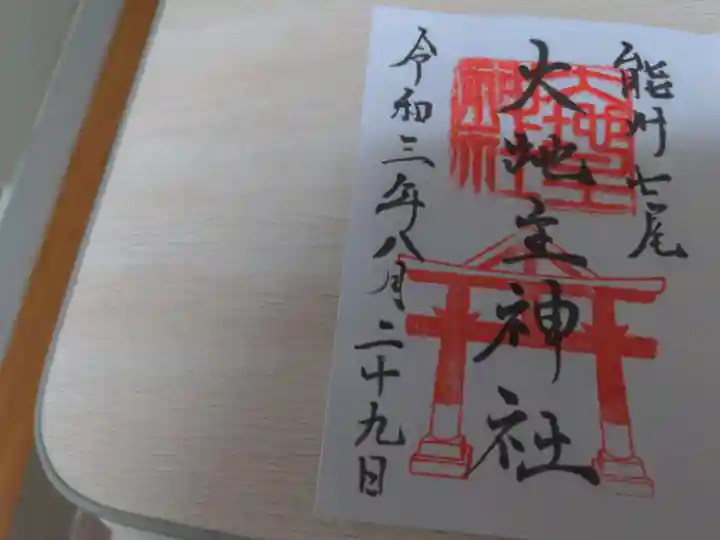 能州七尾
大地主神社
大地主
神社
令和三年八月二十九日